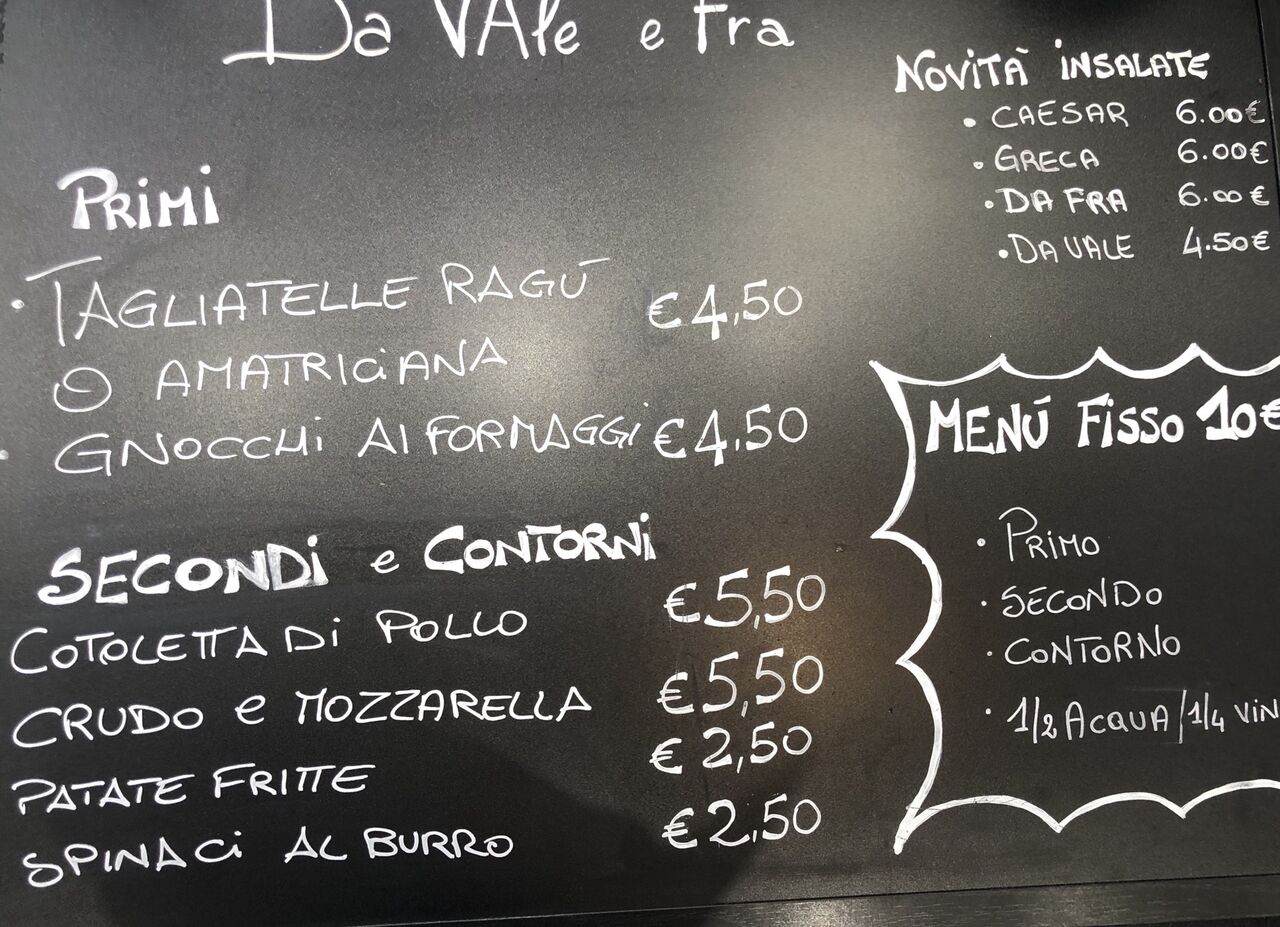 Da VAle e Fra
PRiMi
• TAGLIATELLE RAGÚ € 4,50
O AMATRICIANA
• GNOCCHi AI FORMAGGI € 4,50
SECONDi e CONTORNi
COTOLETTA Di POLLO € 5,50
CRUDO e MOZZARELLA € 5,50
PATATE FRITTE € 2,50
SPINACi AL BURRO € 2,50
NOVITÀ iNSALATE
• CAESAR 6.00€
• GRECA 6.00€
• DA FRA 6.00€
• DA VALE 4.50€
MENÚ FiSSO 10€
• PRiMO
• SECONDO
• CONTORNO
• 1/2 ACQUA/1/4 ViN